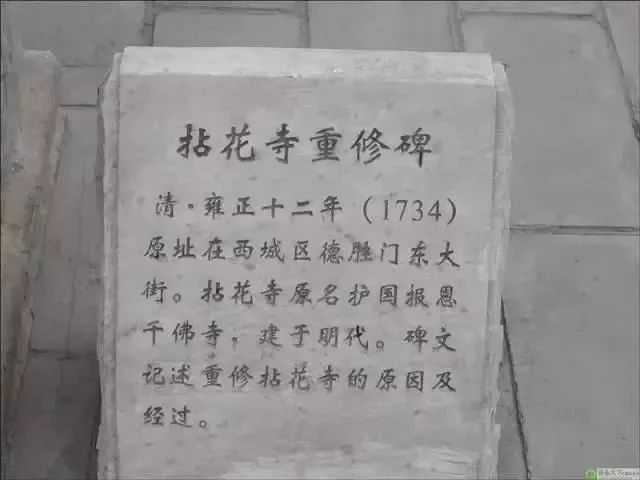 拈花寺重修碑
清·雍正十二年（1734）
原址在西城区德胜门东大
街。拈花寺原名护国报恩
千佛寺，建于明代。碑文
记述重修拈花寺的原因及
经过。